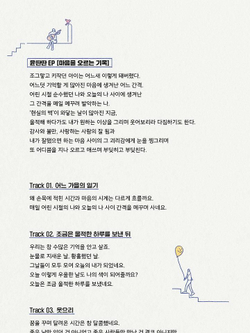 윤딴딴 EP [마음을 오르는 기록]
조그맣고 키작던 아이는 어느새 이렇게 돼버렸다.
어느덧 기억할 게 많아진 마음에 생겨난 어느 간격.
어린 시절 순수했던 나와 오늘의 나 사이에 생겨난
그 간격을 매일 메꾸려 발악하는 나.
'현실의 벽'이 와닿는 날이 많아진 지금,
울적해 하다가도 내가 원하는 이상을 그리며 웃어보리라 다짐하기도 한다.
감사와 불만, 사랑하는 사람의 잘 됨과
내가 잘됐으면 하는 마음 사이의 그 괴리감에게 눈을 찡그리며
또 어디쯤을 지나 오르고 애쓰며 부딪히고 부딪힌다.
Track 01. 어느 가을의 일기
왜 손목에 적힌 시간과 마음의 시계는 다르게 흐를까요.
매일 어린 시절의 나와 오늘의 나 사이 간격을 메꾸며 사네요.
Track 02. 조금은 울적한 하루를 보낸 뒤
우리는 참 수많은 기억을 안고 살죠.
눈물로 지새운 날, 황홀했던 날.
그날들이 모두 모여 오늘의 내가 되었네요.
오늘 이렇게 우울한 날도 나의 색이 되어줄까요?
오늘은 조금 울적한 하루를 보냈네요.
Track 03. 못으리
꿈을 꾸며 달려온 시간은 참 달콤했네요.